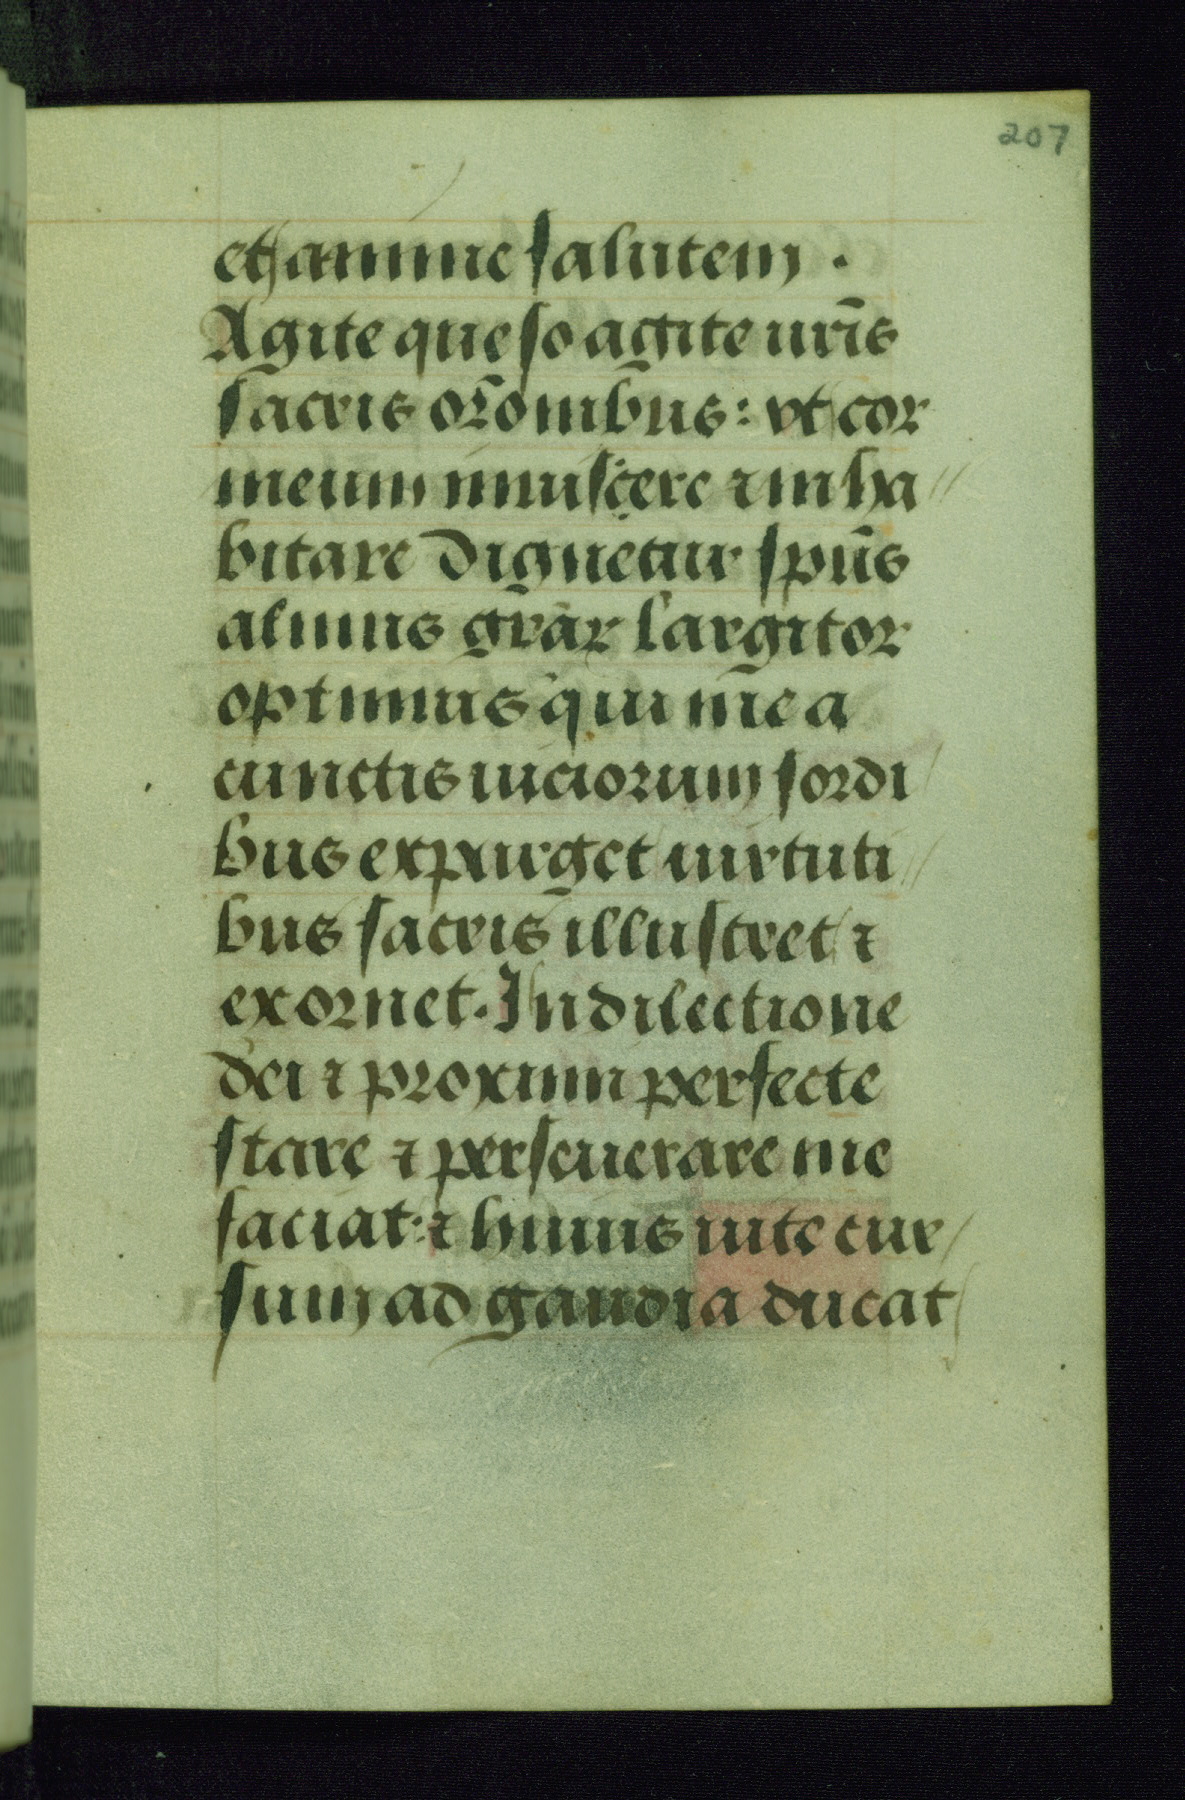 207
et anime salutem .
Agite queso agite ur̄is
sacris or̄onibus: vt cor
meum inuiscere ⁊ inha//
bitare dignetur sp̄us
almus gr̄ar largitor
optimus qui me a
cunctis uiciorum sordi/
bus expurget uirtuti//
bus sacris illustret ⁊
exornet. In dilectione
dei ⁊ proximi perfecte
stare ⁊ perseuerare me
faciat: ⁊ huius uite cur/
sum ad gaudia ducat